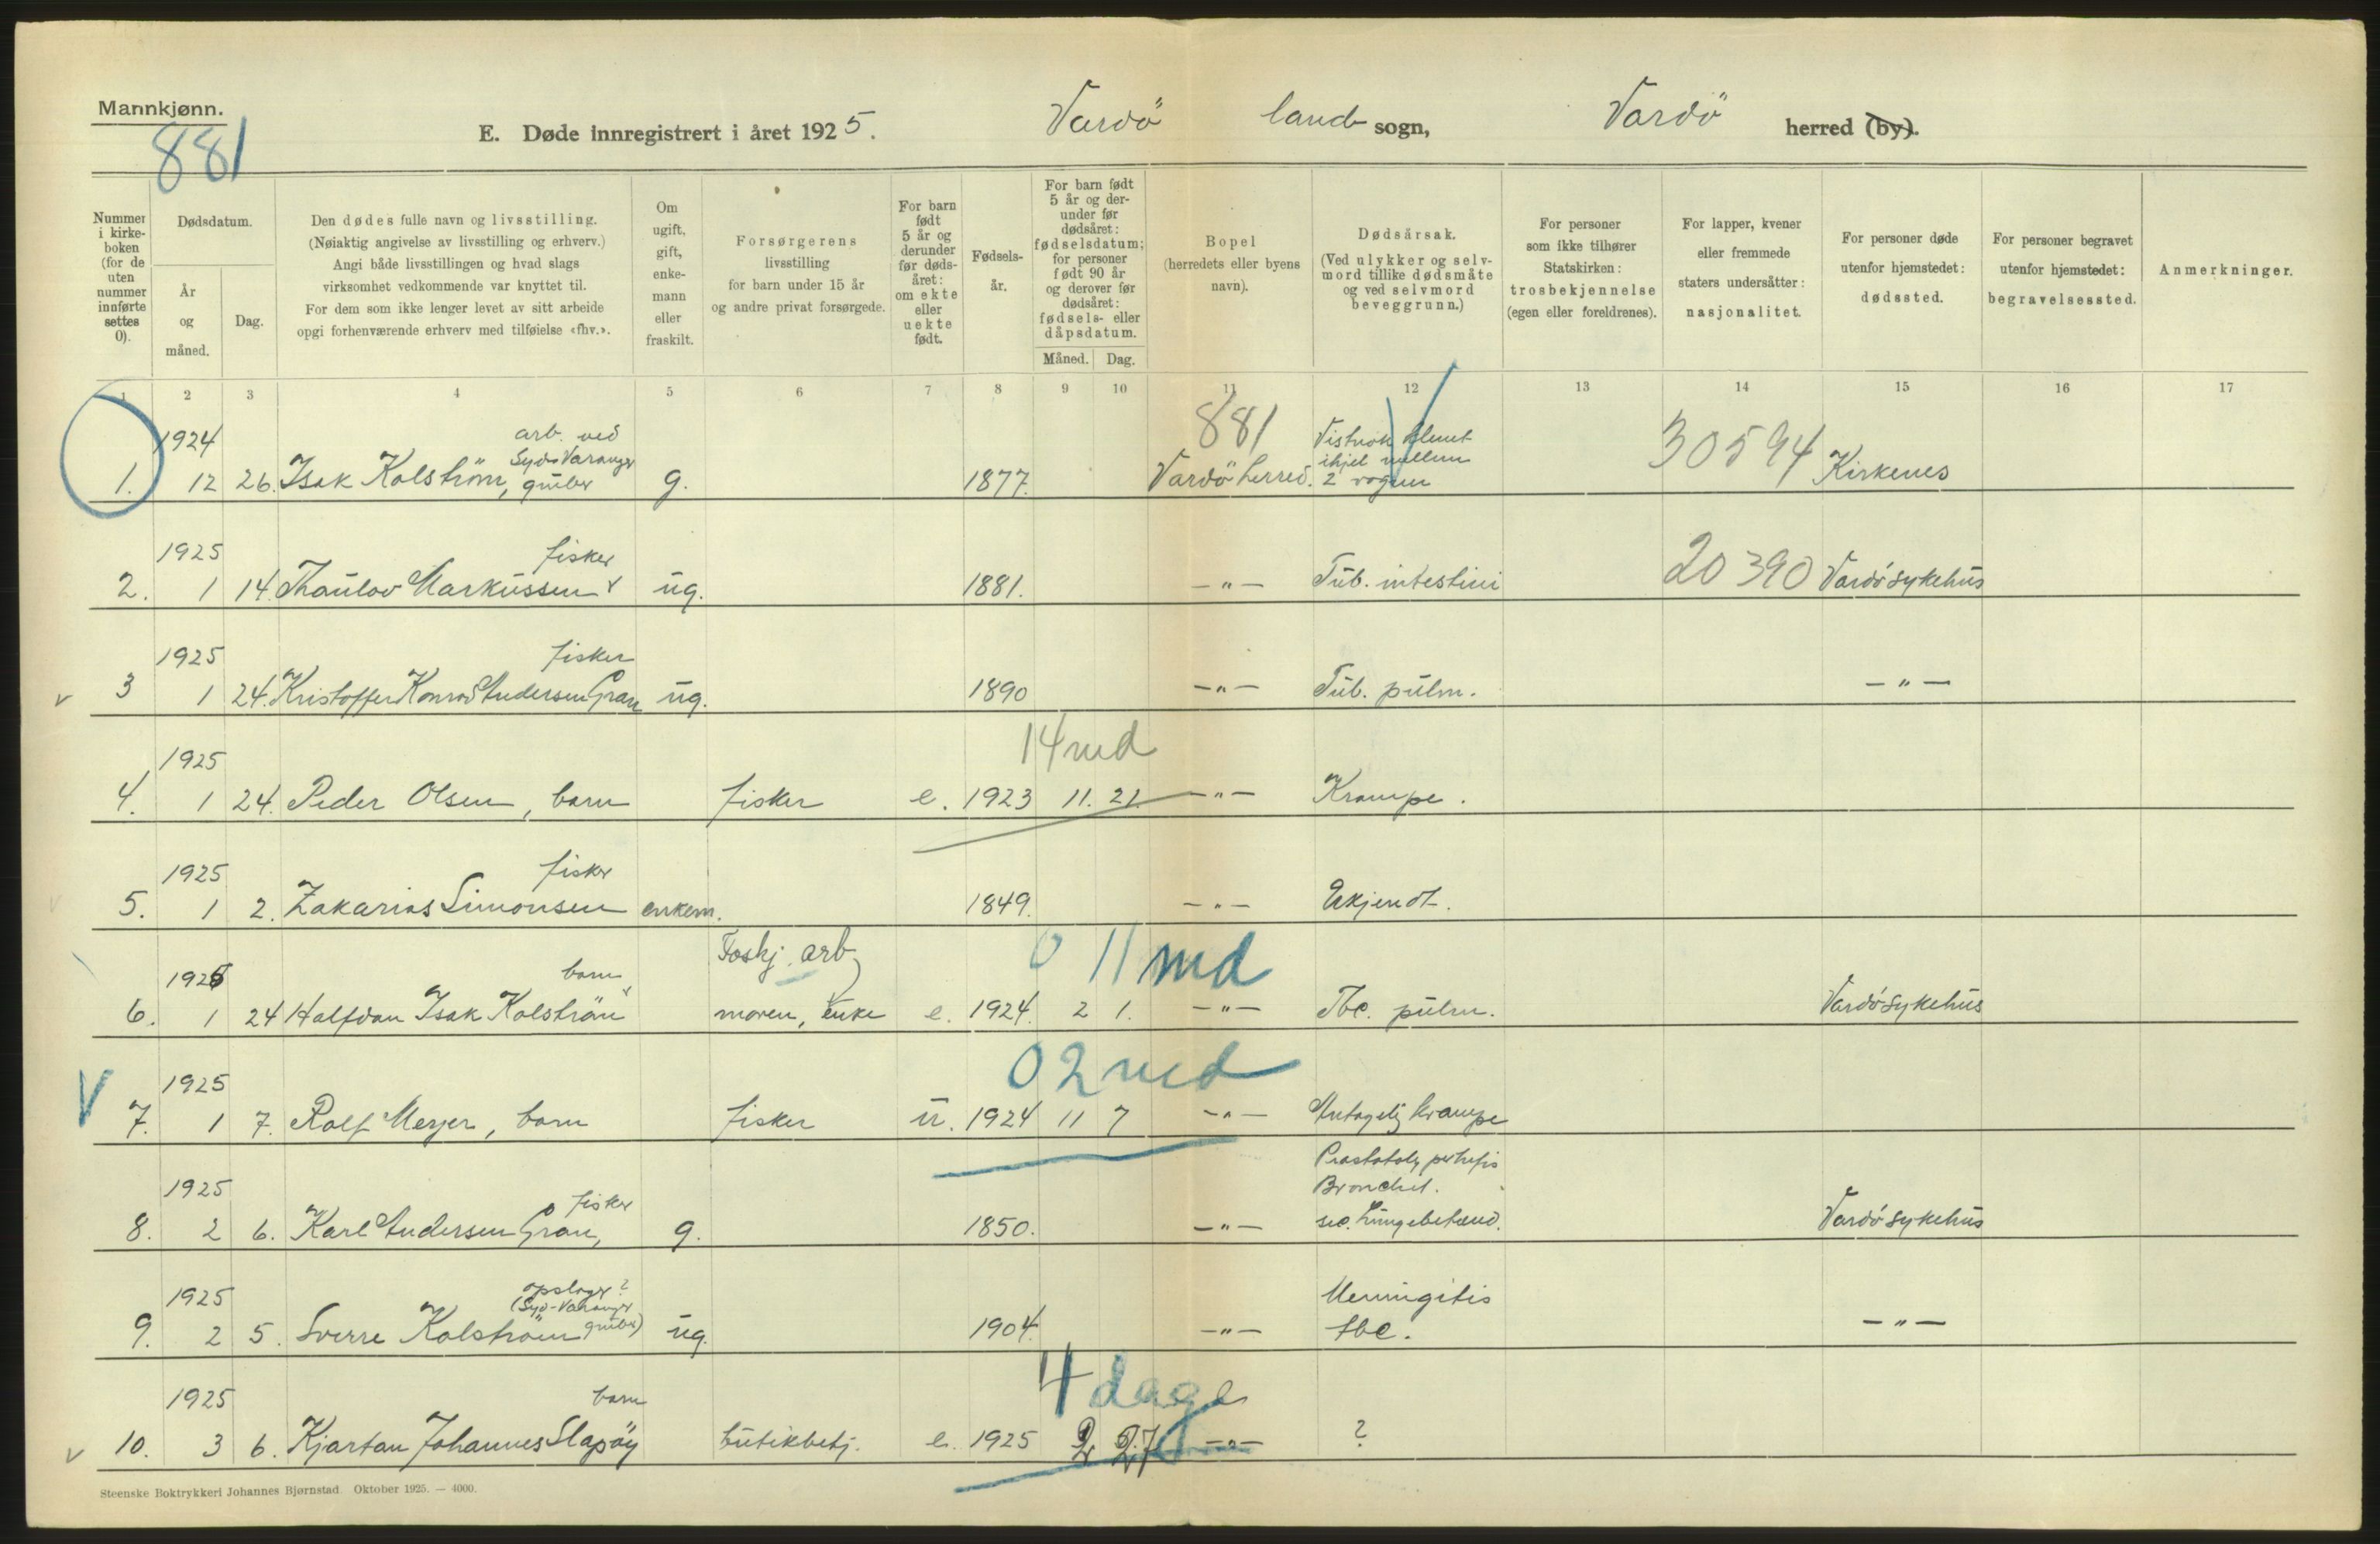 Mannkjønn.
881
E. Døde innregistrert i året 1925. Vardö land sogn, Vardö herred (by).
Nummer i kirke-boken (for de uten nummer innførte settes 0).
Dødsdatum.
År og måned.
Dag.
Den dødes fulle navn og livsstilling.
(Nøiaktig angivelse av livsstilling og erhverv.)
Angi både livsstillingen og hvad slags
virksomhet vedkommende var knyttet til.
For dem som ikke lenger levet av sitt arbeide
opgi forhenværende erhverv med tilføielse «fhv.».
Om ugift, gift, enke-mann eller fraskilt.
Forsørgerens
livsstilling
for barn under 15 år
og andre privat forsørgede.
For barn født 5 år og derunder før døds-året: om ekte eller uekte født.
Fødsels-år.
For barn født 5 år og der-under før dødsåret: fødselsdatum; for personer født 90 år og derover før dødsåret: fødsels- eller dåpsdatum.
Måned. Dag.
Bopel
(herredets eller byens
navn).
Dødsårsak.
(Ved ulykker og selv-
mord tillike dødsmåte
og ved selvmord
beveggrunn.)
For personer
som ikke tilhører
Statskirken:
trosbekjennelse
(egen eller foreldrenes).
For lapper, kvener
eller fremmede
staters undersåtter:
nasjonalitet.
For personer døde
utenfor hjemstedet:
dødssted.
For personer begravet
utenfor hjemstedet:
begravelsessted.
Anmerkninger.
1 2 3 4 5 6 7 8 9 10 11 12 13 14 15 16 17
1924 arb. ved Syd-Varanger 881 Vistnok klemt
1. 12 26. Isak Kolström, gruber g. 1877. Vardö herred. ihjel mellem 2 vogner 30594 Kirkenes
1925 fisker
2. 1 14. Thaulov Markussen ug. 1881. -"- Tub. intestini 20390 Vardö sykehus
1925 fisker
3 1 24. Kristoffer Konrad Andersen Gran ug. 1890 -"- Tub. pulm. -"-
1925 14 md
4. 1 24. Peder Olsen, barn fisker e. 1923 11. 21. -"- Krampe.
1925 fisker
5. 1 2. Zakarias Simonsen enkem. 1849. -"- Ukjendt.
1925 barn arb. 0 11 md
6. 1 24 Halfdan Isak Kolström moren, enke e. 1924. 2 1. -"- Tbc. pulm. Vardö sykehus
1925 0 2 md
7. 1 7. Rolf Meyer, barn fisker u. 1924 11 7 -"- Antagelig krampe
1925 fisker Bronchit.
8. 2 6. Karl Andersen Gran, g. 1850. -"- sec. Lungebetænd. Vardö sykehus
1925 (Syd-Varanger gruber) Meningitis
9. 2 5. Sverre Kolström ug. 1904. -"- tbc. -"-
1925 barn 4 dage
10. 3 6. Kjartan Johannes Slapöy butikbetj. e. 1925 2 27 -"- ?
Steenske Boktrykkeri Johannes Bjørnstad. Oktober 1925. — 4000.